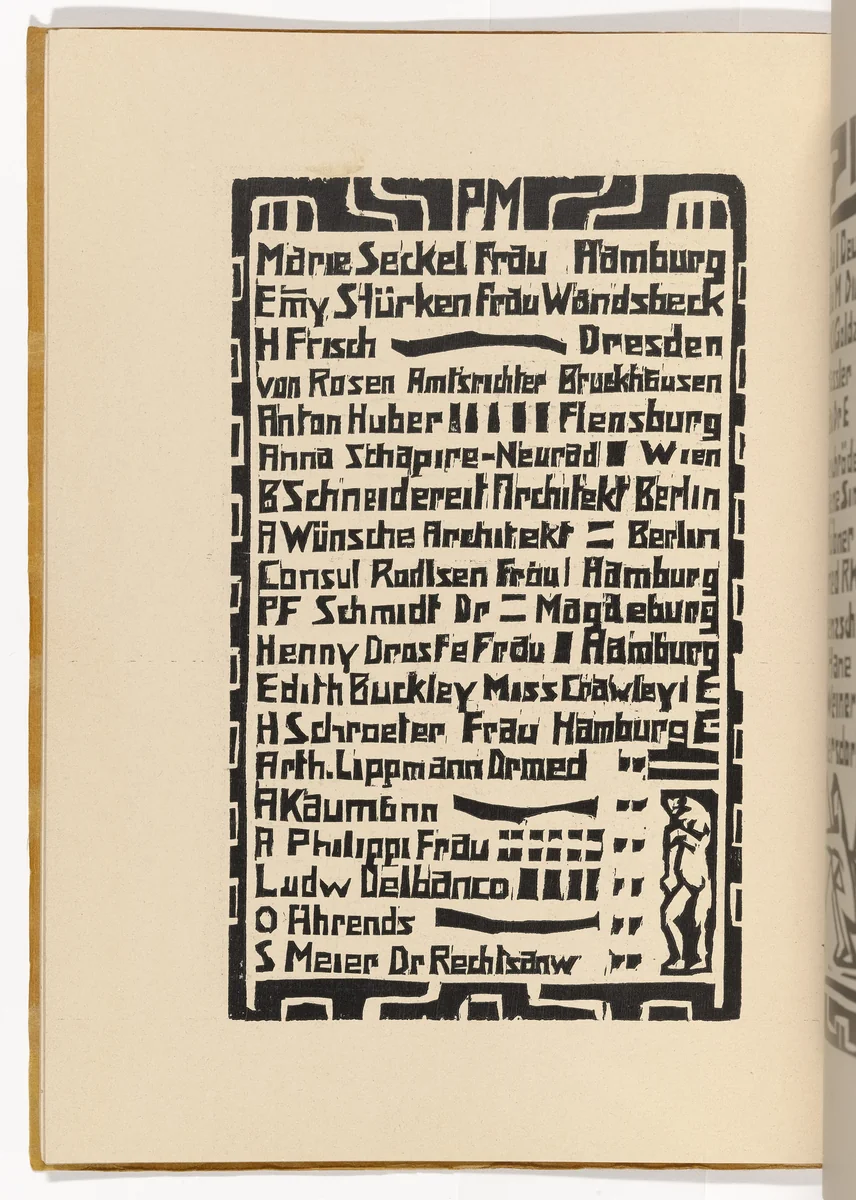 PM
Marie Seckel Frau Hamburg
Em̅y Stürken Frau Wandsbeck
H Frisch Dresden
von Rosen Amtsrichter Bruckhausen
Anton Huber Flensburg
Anna Schapire-Neurad Wien
B Schneidereit Architekt Berlin
A Wünsche Architekt = Berlin
Consul Rodlsen Frau Hamburg
PF Schmidt Dr = Magdeburg
Henny Droste Frau Hamburg
Edith Buckley Miss Crawley E
H Schroeter Frau Hamburg E
Arth. Lippmann Dr med "
A Kaumann "
A Philippi Frau "
Ludw Delbanco "
O Ahrends "
S Meier Dr Rechtsanw "